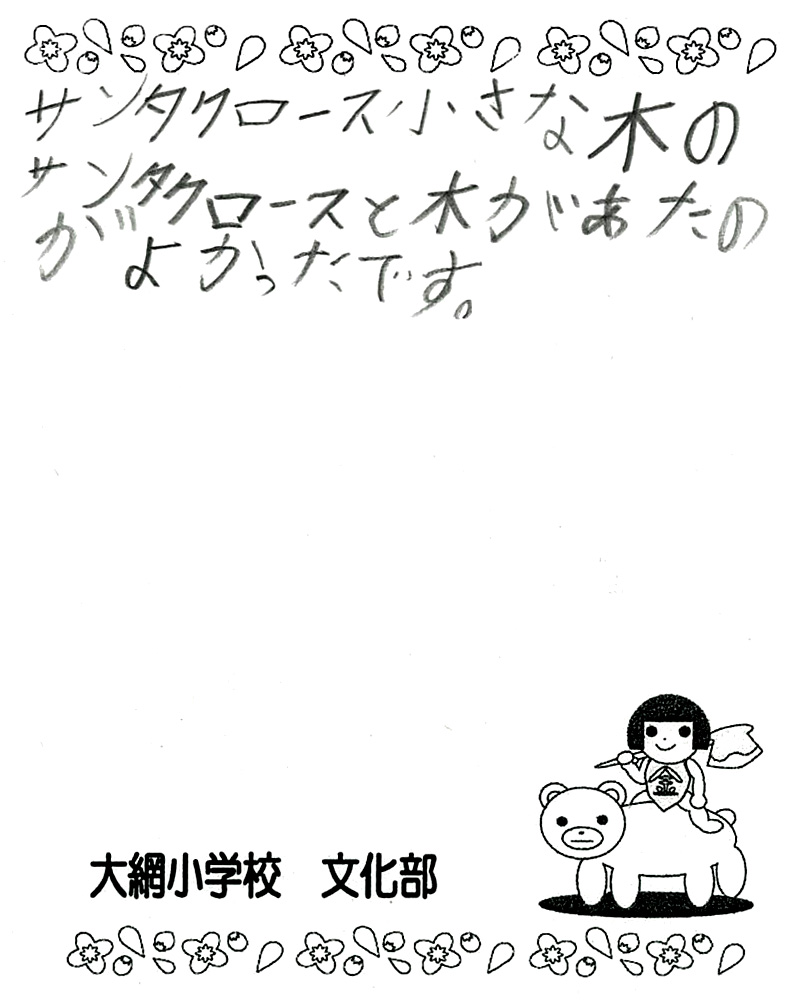 サンタクロース小さな木の
サンタクロースと木があたの
がよかったです。
金
大網小学校　文化部